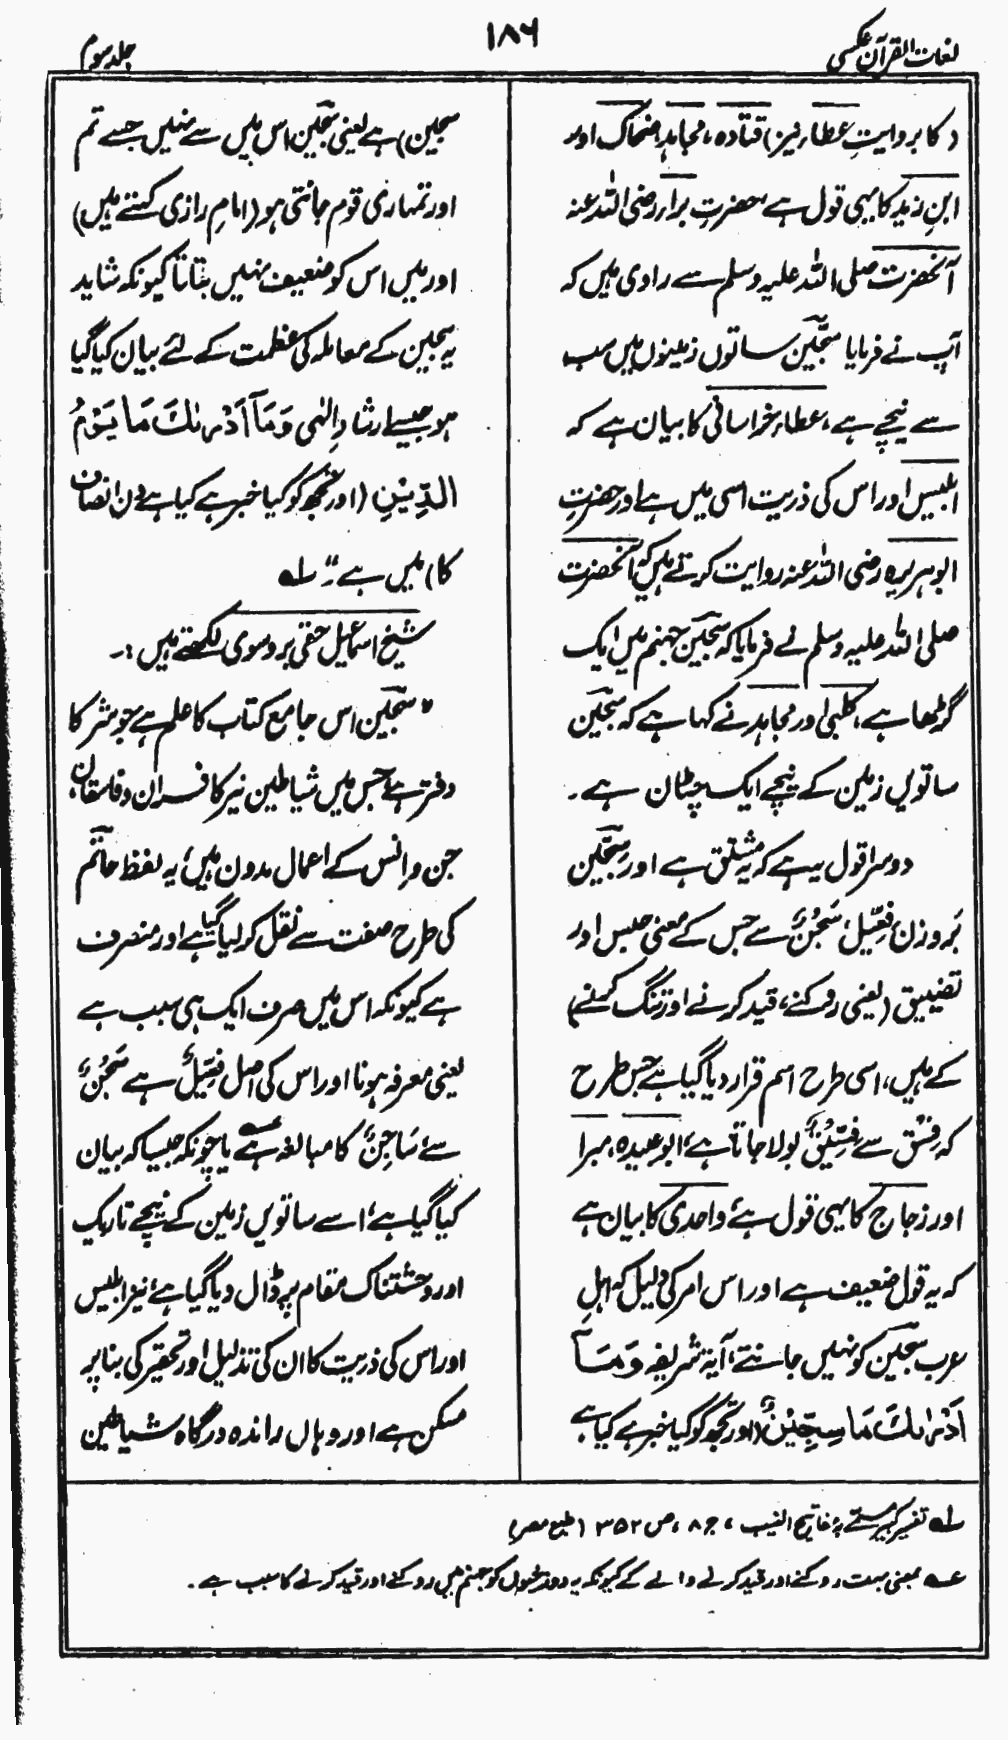 لغات القرآن عکسی
۱۸۶
جلد سوم
د کا بروایتِ عطاء نیز) قتادہ، مجاہد، ضحاک اور
ابنِ زید کا یہی قول ہے، حضرتِ براء رضی اللہ عنہ
آنحضرت صلی اللہ علیہ وسلم سے راوی ہیں کہ
آپ نے فرمایا سجّین ساتوں زمینوں میں سب
سے نیچے ہے، عطاء خراسانی کا بیان ہے کہ
ابلیس اور اس کی ذریت اسی میں ہے اور حضرتِ
ابوہریرہ رضی اللہ عنہ روایت کرتے ہیں کہ آنحضرت
صلی اللہ علیہ وسلم نے فرمایا کہ سجّین جہنم میں ایک
گڑھا ہے، کلبی اور مجاہد نے کہا ہے کہ سجّین
ساتویں زمین کے نیچے ایک چٹان ہے۔
دوسرا قول یہ ہے کہ یہ مشتق ہے اور سِجّین
بَروزن فِعِّیلٌ سَجْنٌ سے جس کے معنی حبس اور
تضییق (یعنی روکنے، قید کرنے اور تنگ کرنے)
کے ہیں، اسی طرح اسم قرار دیا گیا ہے جس طرح
کہ فِسْق سے فِسِّیْقٌ بولا جاتا ہے، ابو عبیدہ، مبرد
اور زجاج کا یہی قول ہے، واحدی کا بیان ہے
کہ یہ قول ضعیف ہے اور اس امر کی دلیل کہ اہلِ
عرب سجّین کو نہیں جانتے، آیۃ شریفہ وَمَآ
اَدْرٰىكَ مَا سِجِّيْنٌ (اور تجھ کو کیا خبر ہے کیا ہے
سجین) ہے یعنی سجّین اس میں سے نہیں جسے تم
اور تمہاری قوم جانتی ہو (امامِ رازی کہتے ہیں)
اور میں اس کو ضعیف نہیں بتاتا کیونکہ شاید
یہ سجین کے معاملہ کی عظمت کے لئے بیان کیا گیا
ہو جیسے ارشادِ الٰہی وَمَآ اَدْرٰىكَ مَا يَوْمُ
الدِّيْنِ (اور تجھ کو کیا خبر ہے کیا ہے دن انصاف
کا) میں ہے"۔ لہ
شیخ اسماعیل حقی بروسوی لکھتے ہیں :۔
"سجّین اس جامع کتاب کا علم ہے جو شر کا
دفتر ہے جس میں شیاطین نیز کافران و فاسقان،
جن و انس کے اعمال مدون ہیں، یہ لفظ حاتم
کی طرح صفت سے نقل کر لیا گیا ہے اور منصرف
ہے کیونکہ اس میں صرف ایک ہی سبب ہے
یعنی معرفہ ہونا اور اس کی اصل فِعِّیلٌ ہے سَجْنٌ
سے، سَاجِنٌ کا مبالغہ ہے عہ یا چونکہ جیسا کہ بیان
کیا گیا ہے، اسے ساتویں زمین کے نیچے تاریک
اور وحشتناک مقام پر ڈال دیا گیا ہے، نیز ابلیس
اور اس کی ذریت کا ان کی تذلیل اور تحقیر کی بنا پر
مسکن ہے اور وہاں راندہ درگاہ شیاطین
لہ تفسیر کبیر مسمّے بہ مفاتیح الغیب، ج ۸، ص ۳۵۲ (طبع مصر)
عہ بمعنی بہت روکنے اور قید کرنے والے کے کیونکہ یہ دوزخیوں کو جہنم میں روکنے اور قید کرنے کا سبب ہے۔